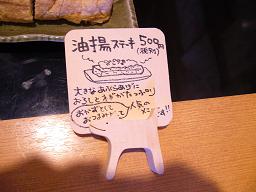 油揚ステーキ 500円
(税別)
大きなあぶらあげに
おろしとネギがたっぷり
おかずとして
おつまみとして
人気の
メニューです!!